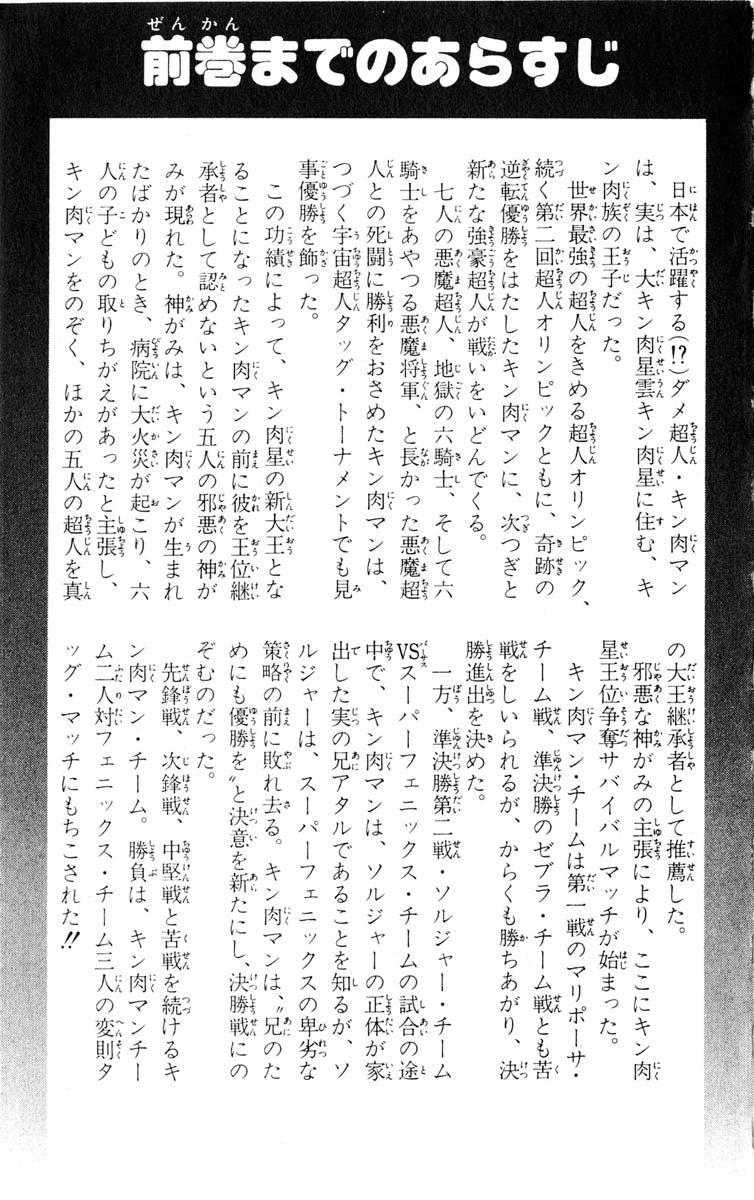 前巻までのあらすじ
日本で活躍する(!?)ダメ超人・キン肉マン
は、実は、大キン肉星雲キン肉星に住む、キ
ン肉族の王子だった。
世界最強の超人をきめる超人オリンピック、
続く第二回超人オリンピックともに、奇跡の
逆転優勝をはたしたキン肉マンに、次つぎと
新たな強豪超人が戦いをいどんでくる。
七人の悪魔超人、地獄の六騎士、そして六
騎士をあやつる悪魔将軍、と長かった悪魔超
人との死闘に勝利をおさめたキン肉マンは、
つづく宇宙超人タッグ・トーナメントでも見
事優勝を飾った。
この功績によって、キン肉星の新大王とな
ることになったキン肉マンの前に彼を王位継
承者として認めないという五人の邪悪の神が
みが現れた。神がみは、キン肉マンが生まれ
たばかりのとき、病院に大火災が起こり、六
人の子どもの取りちがえがあったと主張し、
キン肉マンをのぞく、ほかの五人の超人を真
の大王継承者として推薦した。
邪悪な神がみの主張により、ここにキン肉
星王位争奪サバイバルマッチが始まった。
キン肉マン・チームは第一戦のマリポーサ・
チーム戦、準決勝のゼブラ・チーム戦とも苦
戦をしいられるが、からくも勝ちあがり、決
勝進出を決めた。
一方、準決勝第二戦・ソルジャー・チーム
VSスーパーフェニックス・チームの試合の途
中で、キン肉マンは、ソルジャーの正体が家
出した実の兄アタルであることを知るが、ソ
ルジャーは、スーパーフェニックスの卑劣な
策略の前に敗れ去る。キン肉マンは、〝兄のた
めにも優勝を〟と決意を新たにし、決勝戦にの
ぞむのだった。
先鋒戦、次鋒戦、中堅戦と苦戦を続けるキ
ン肉マン・チーム。勝負は、キン肉マンチー
ム二人対フェニックス・チーム三人の変則タ
ッグ・マッチにもちこされた!!